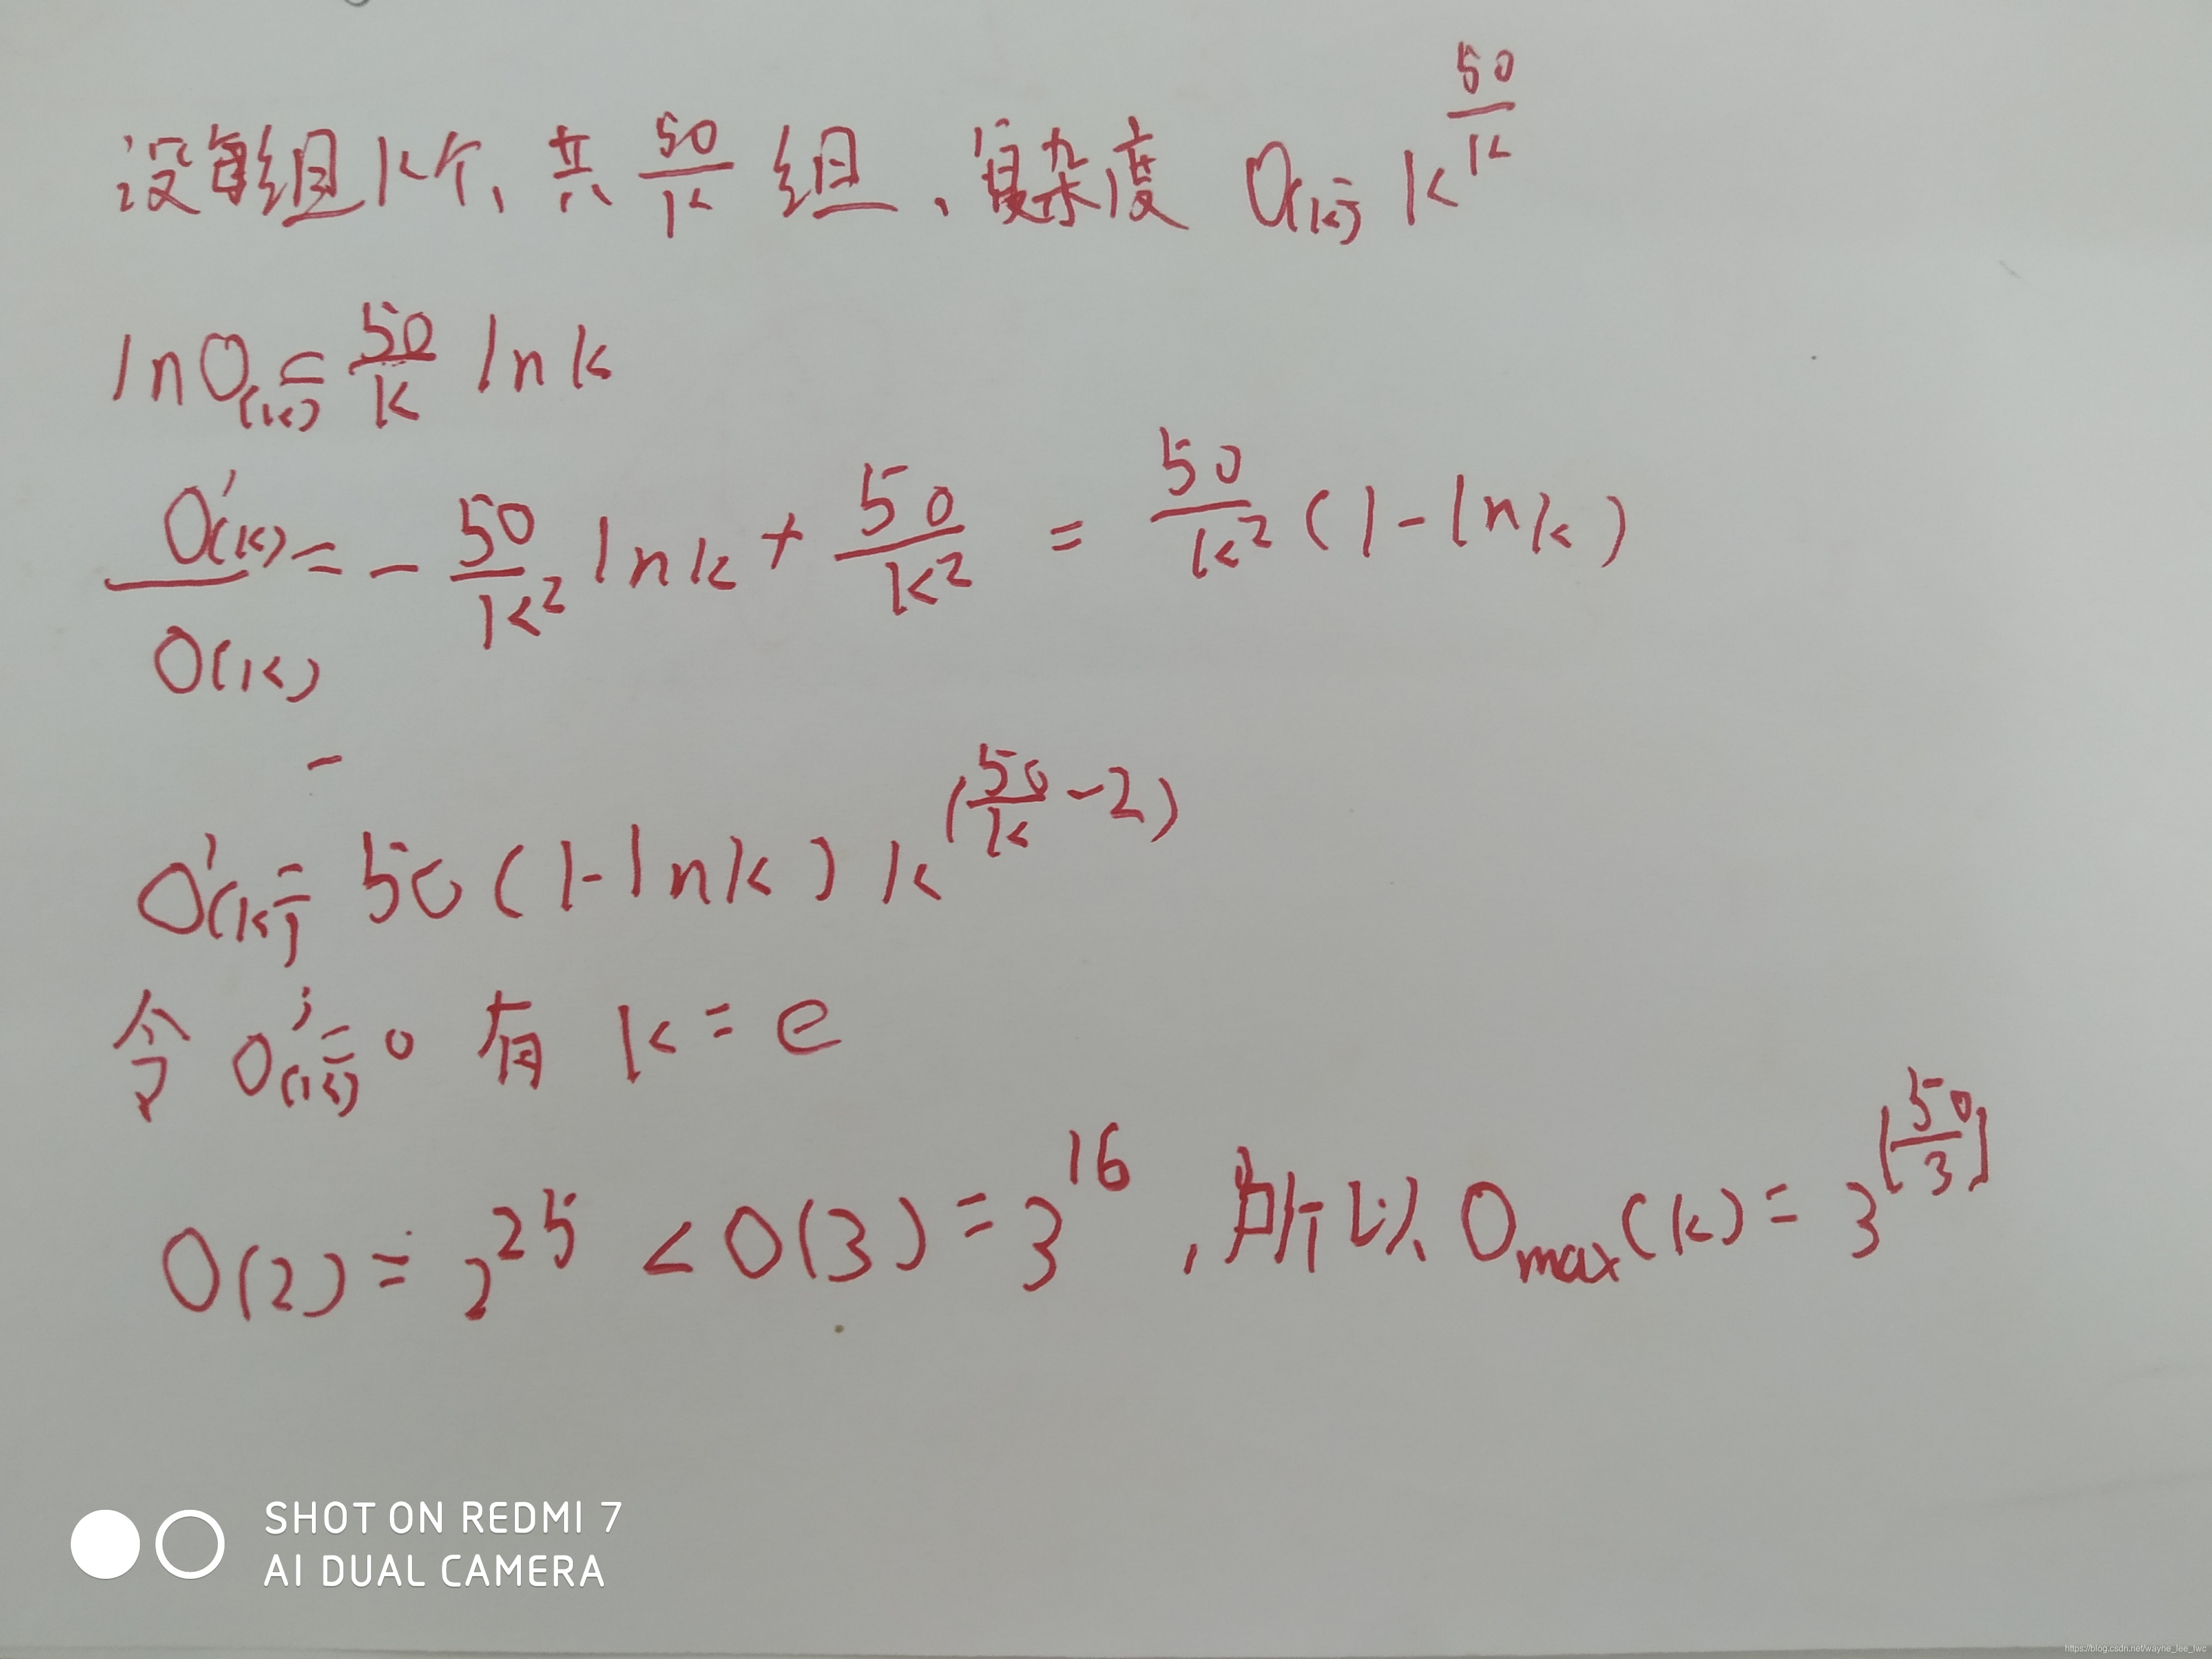 设每组k个，共 50/k 组，复杂度 O(k)= k^(50/k)
ln O(k) = 50/k ln k
O'(k)/O(k) = - 50/k² ln k + 50/k² = 50/k² (1 - ln k)
O'(k) = 50 (1 - ln k) k^(50/k - 2)
令 O'(k) = 0 有 k = e
O(2) = 2^25 < O(3) = 3^16，所以 Omax(k) = 3^[50/3]
SHOT ON REDMI 7
AI DUAL CAMERA
https://blog.csdn.net/wayne_lee_lwc